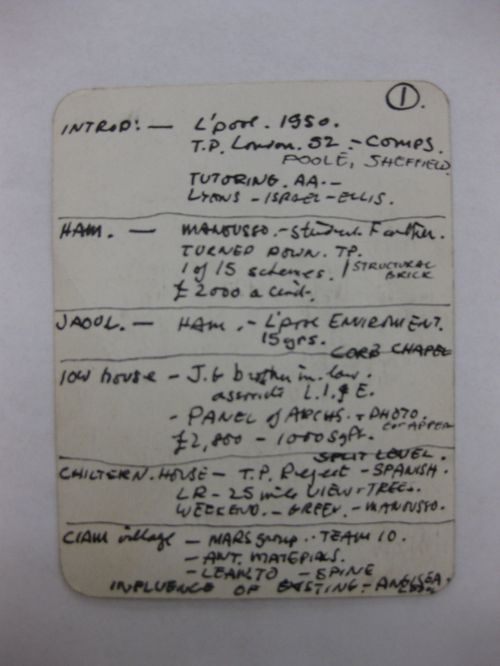 1.
INTROD: — L'pool. 1950.
T.P. London. 52 - COMPS.
POOLE, SHEFFIELD
TUTORING. AA. -
LYONS - ISRAEL - ELLIS.
HAM. — MANOUSSO. - Student Father.
TURNED DOWN. TP.
1 of 15 schemes. / STRUCTURAL
BRICK
£2000 a
— HAM. - L'pool ENVIRMENT.
15 yrs.
CORB CHAPEL
IOW house - J.G brother in. law.
associate L.I. & E.
- PANEL of ARCHS. + PHOTO.
£2,800 - 1000 sq ft.
SPLIT LEVEL.
CHILTERN. HOUSE - T.P. Project - SPANISH.
LR - 25 mile VIEW + TREE.
WEEKEND. - GREEK. - MANOUSSO.
CIAM village - MARS group. - TEAM 10.
- ANT. MATERIALS.
- LEAN TO - SPINE
INFLUENCE OF EXISTING - ANGLSEA.